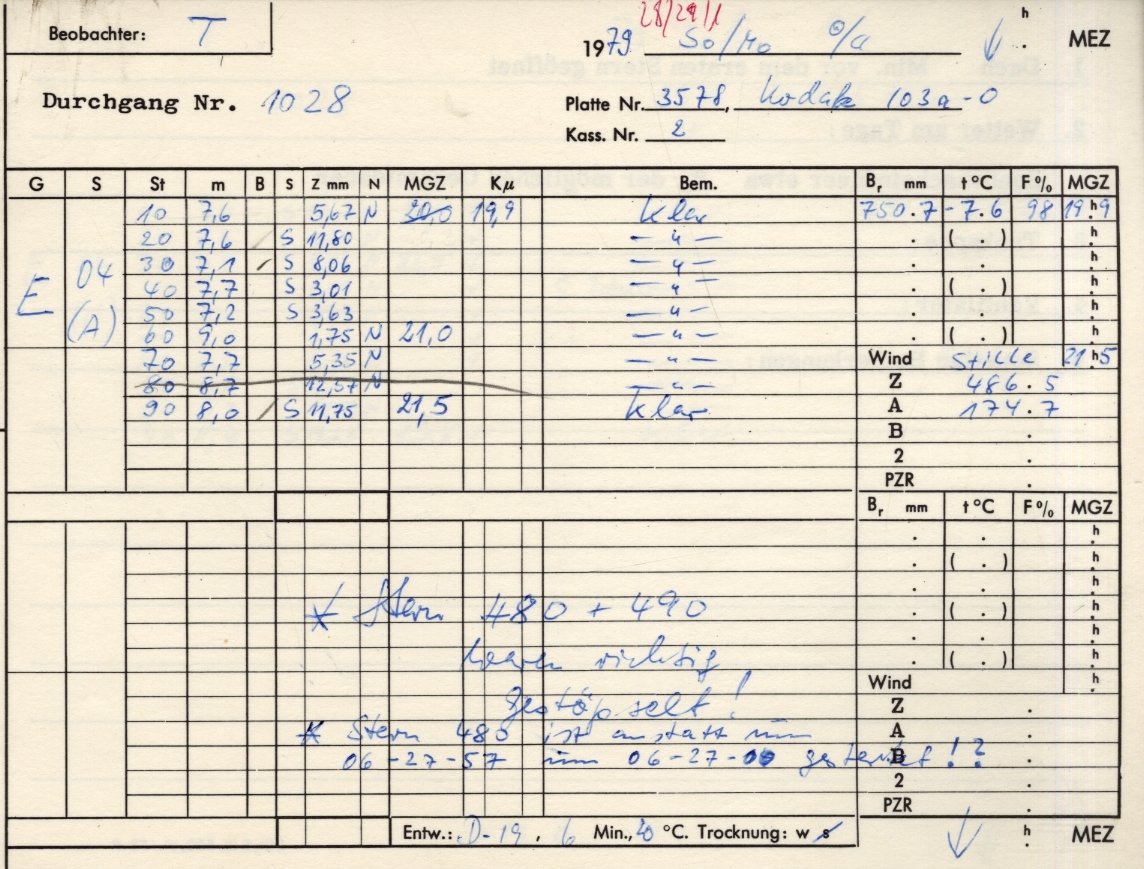 28/29/1
Beobachter: T
1979 So/Mo h MEZ
Durchgang Nr. 1028
Platte Nr. 3578, Kodak 103a-O
Kass. Nr. 2
G S St m B S Z mm N MGZ Kµ Bem. Br mm t°C F% MGZ
10 7,6 5,67 N 20,0 19,9 Klar 750.7 -7.6 98 19h9
20 7,6 / S 11,80 — " — . ( . ) h
30 7,1 / S 8,06 — " — . . h
E 04 (A)
40 7,7 S 3,01 — " — . ( . ) h
50 7,2 S 3,63 — " — . . h
60 9,0 1,75 N 21,0 — " — . ( . ) h
70 7,7 5,35 N — " — Wind Stille 21h5
80 8,7 12,57 N — " — Z 486.5
90 8,0 / S 11,75 21,5 Klar A 174.7
B .
2 .
PZR .
Br mm t°C F% MGZ
. . h
. ( . ) h
. . h
* Stern 480 + 490 . ( . ) h
. . h
waren richtig . ( . ) h
Wind h
gestöpselt! Z .
* Stern 480 ist anstatt um A .
06-27-57 um 06-27-00 gesternt!? B .
2 .
PZR .
Entw.: D-19, 6 Min., 20 °C. Trocknung: w s h MEZ